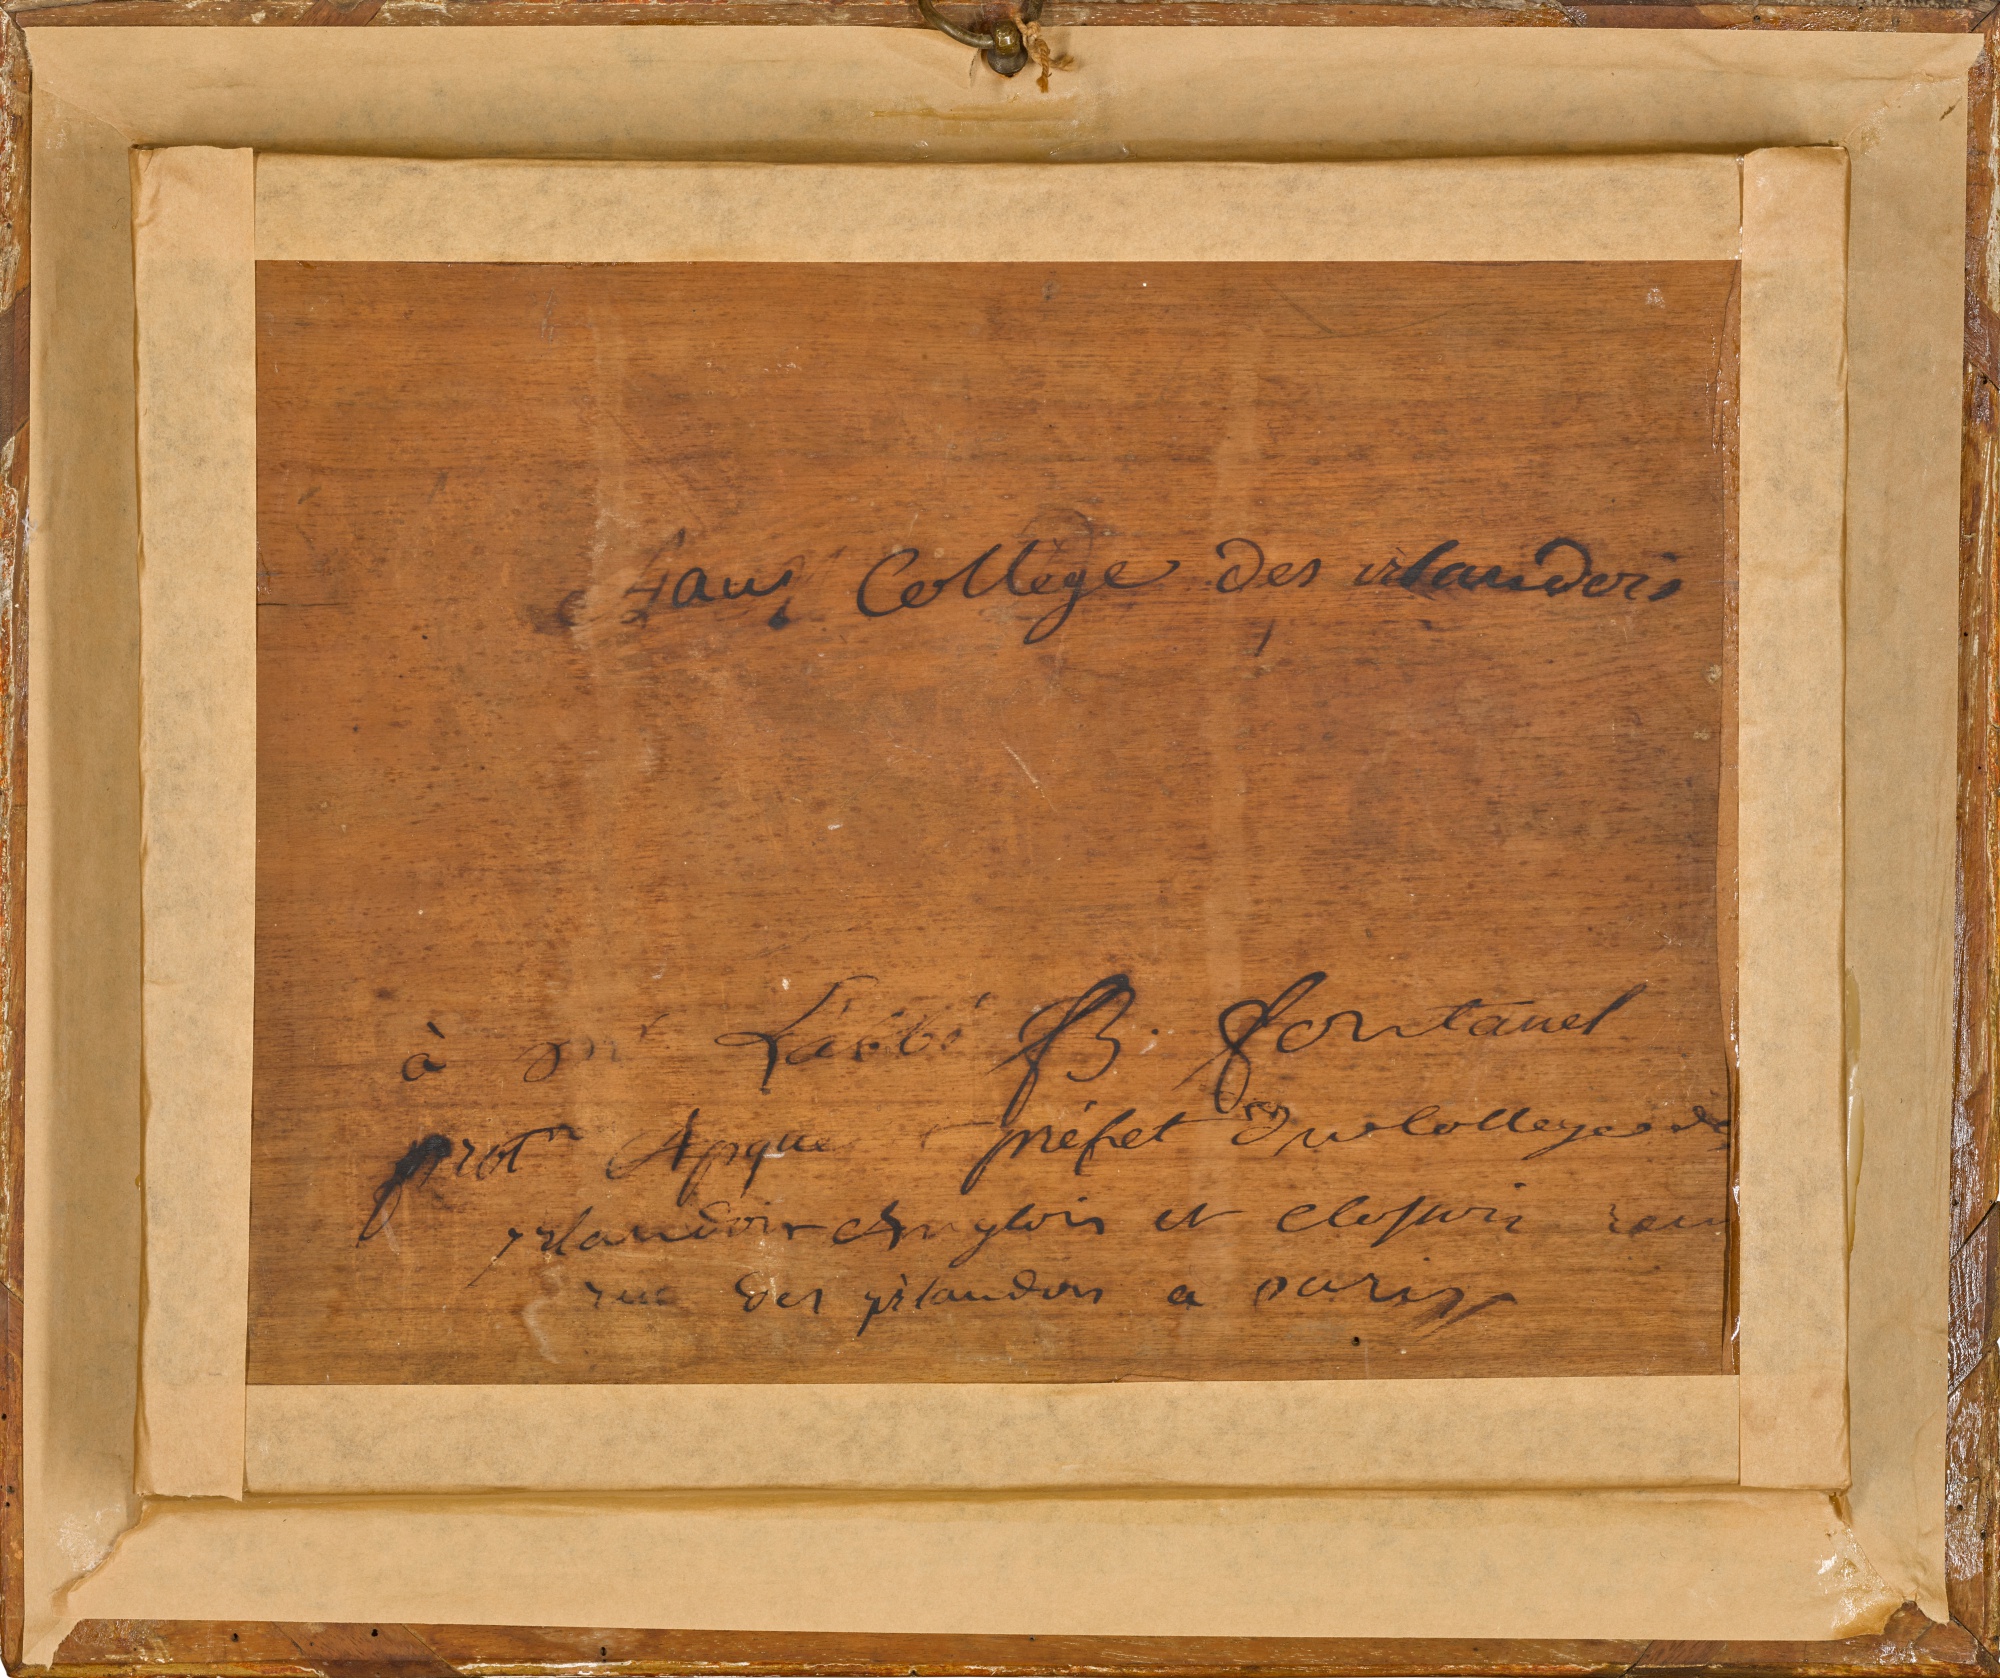 College des irlandois
à mr Labbé B. fontanel
protre Apque préfet du College des
yrlandois Anglois et Ecossois
rue des yrlandois a paris